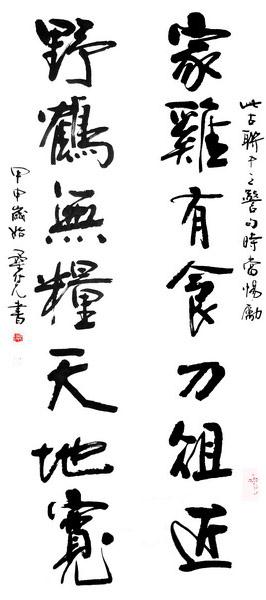 此古聯中之警句時當惕勵
家雞有食刀俎近
野鶴無糧天地寬
甲申歲始 書